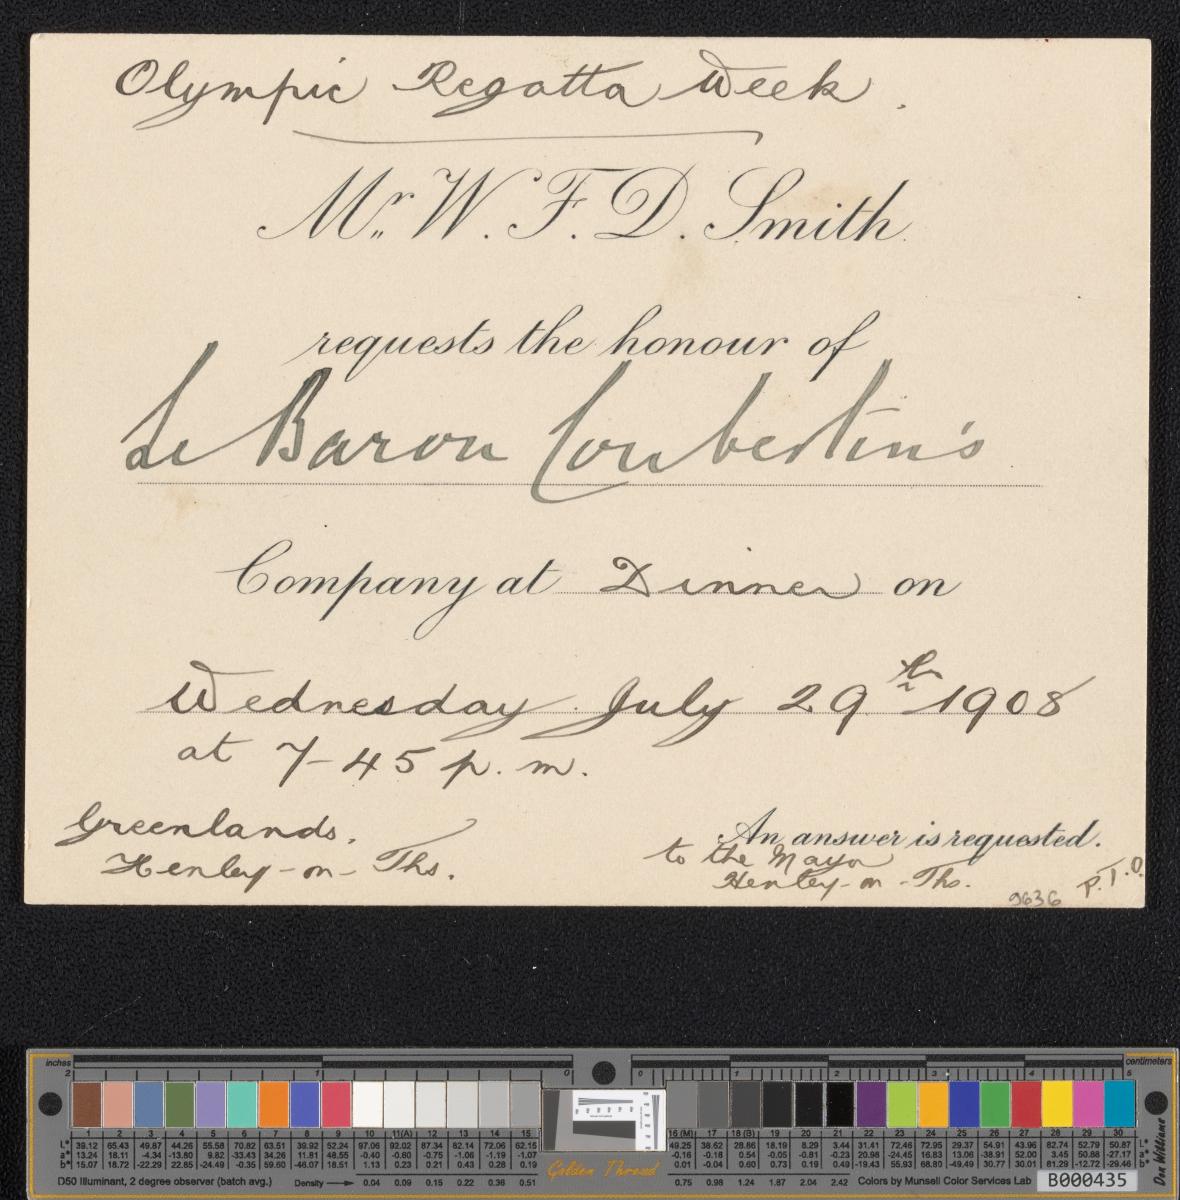 Olympic Regatta Week.
Mr. W. F. D. Smith
requests the honour of
Le Baron Coubertin's
Company at Dinner on
Wednesday July 29th 1908
at 7-45 p.m.
Greenlands.
Henley-on-Ths.
An answer is requested.
to the Mayor
Henley-on-Ths.
P.T.O.
9636
inches
centimeters
2 1 0
0 1 2 3 4 5
1 2 3 4 5 6 7 8 9 10 11(A) 12 13 14 15
L* 39.12 65.43 49.87 44.26 55.58 70.82 63.51 39.92 52.24 97.06 92.02 87.34 82.14 72.06 62.15
a* 13.24 18.11 -4.34 -13.80 9.82 -33.43 34.26 11.81 48.55 -0.40 -0.60 -0.75 -1.06 -1.19 -1.07
b* 15.07 18.72 -22.29 22.85 -24.49 -0.35 59.60 -46.07 18.51 1.13 0.23 0.21 0.43 0.28 0.19
D50 Illuminant, 2 degree observer (batch avg.) Density 0.04 0.09 0.15 0.22 0.36 0.51
Golden Thread
16 (M) 17 18 (B) 19 20 21 22 23 24 25 26 27 28 29 30
49.25 38.62 28.86 18.19 8.29 3.44 31.41 72.46 72.95 29.37 54.91 43.96 82.74 52.79 50.87 L*
-0.16 -0.18 0.54 -0.05 -0.81 -0.23 20.98 -24.45 16.83 13.06 -38.91 52.00 3.45 50.88 -27.17 a*
0.01 -0.04 0.60 0.73 0.19 0.49 -19.43 55.93 68.80 -49.49 30.77 30.01 81.29 -12.72 -29.46 b*
0.75 0.98 1.24 1.67 2.04 2.42 Colors by Munsell Color Services Lab
B000435
Don Williams